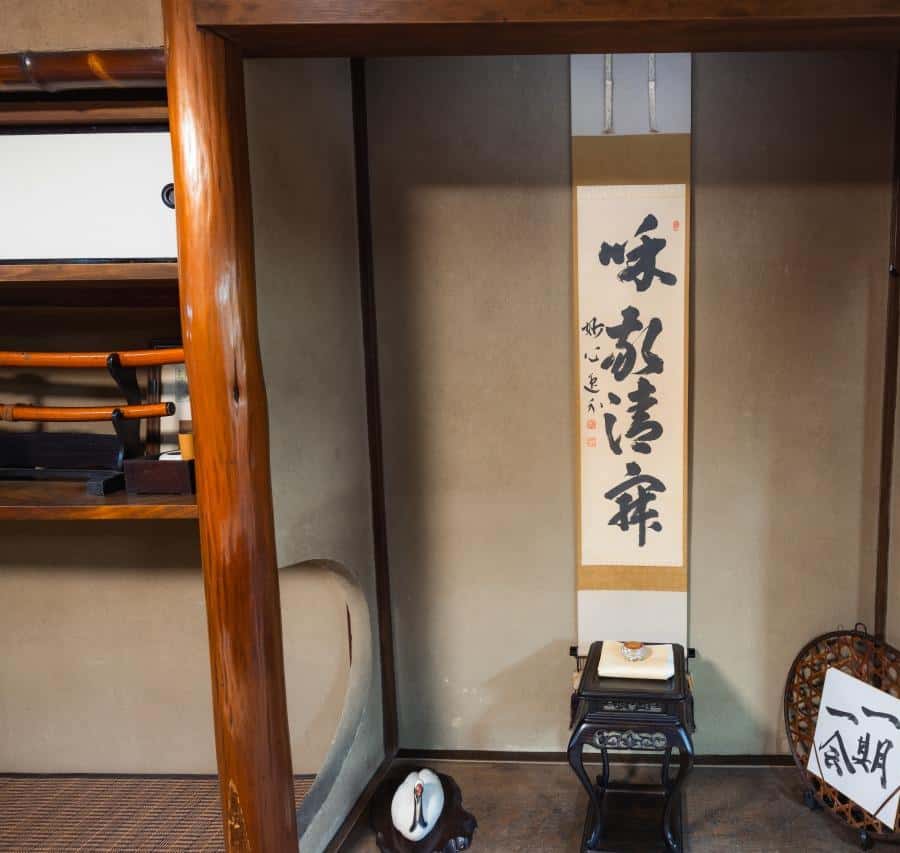 和敬清寂
妙心
一期
一会